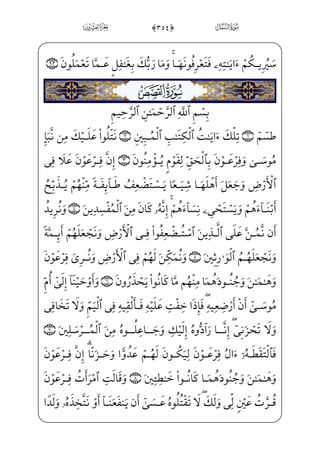 سُورَةُ النَّمْلِ ﴿٣٥٤﴾ الجُزْءُ العِشْرُونَ
سَيُرِيكُمْ ءَايَٰتِهِۦ فَتَعْرِفُونَهَا ۚ وَمَا رَبُّكَ بِغَٰفِلٍ عَمَّا تَعْمَلُونَ ٩٣
سُورَةُ القَصَصِ
بِسْمِ ٱللَّهِ ٱلرَّحْمَٰنِ ٱلرَّحِيمِ
طسٓمٓ ١ تِلْكَ ءَايَٰتُ ٱلْكِتَٰبِ ٱلْمُبِينِ ٢ نَتْلُوا۟ عَلَيْكَ مِن نَّبَإِ
مُوسَىٰ وَفِرْعَوْنَ بِٱلْحَقِّ لِقَوْمٍ يُؤْمِنُونَ ٣ إِنَّ فِرْعَوْنَ عَلَا فِى
ٱلْأَرْضِ وَجَعَلَ أَهْلَهَا شِيَعًا يَسْتَضْعِفُ طَآئِفَةً مِّنْهُمْ يُذَبِّحُ
أَبْنَآءَهُمْ وَيَسْتَحْىِۦ نِسَآءَهُمْ ۚ إِنَّهُۥ كَانَ مِنَ ٱلْمُفْسِدِينَ ٤ وَنُرِيدُ
أَن نَّمُنَّ عَلَى ٱلَّذِينَ ٱسْتُضْعِفُوا۟ فِى ٱلْأَرْضِ وَنَجْعَلَهُمْ أَئِمَّةً
وَنَجْعَلَهُمُ ٱلْوَٰرِثِينَ ٥ وَنُمَكِّنَ لَهُمْ فِى ٱلْأَرْضِ وَنُرِىَ فِرْعَوْنَ
وَهَٰمَٰنَ وَجُنُودَهُمَا مِنْهُم مَّا كَانُوا۟ يَحْذَرُونَ ٦ وَأَوْحَيْنَآ إِلَىٰٓ أُمِّ
مُوسَىٰٓ أَنْ أَرْضِعِيهِ ۖ فَإِذَا خِفْتِ عَلَيْهِ فَأَلْقِيهِ فِى ٱلْيَمِّ وَلَا تَخَافِى
وَلَا تَحْزَنِىٓ ۖ إِنَّا رَآدُّوهُ إِلَيْكِ وَجَاعِلُوهُ مِنَ ٱلْمُرْسَلِينَ ٧
فَٱلْتَقَطَهُۥٓ ءَالُ فِرْعَوْنَ لِيَكُونَ لَهُمْ عَدُوًّا وَحَزَنًا ۗ إِنَّ فِرْعَوْنَ
وَهَٰمَٰنَ وَجُنُودَهُمَا كَانُوا۟ خَٰطِـِٔينَ ٨ وَقَالَتِ ٱمْرَأَتُ فِرْعَوْنَ
قُرَّتُ عَيْنٍ لِّى وَلَكَ ۖ لَا تَقْتُلُوهُ عَسَىٰٓ أَن يَنفَعَنَآ أَوْ نَتَّخِذَهُۥ وَلَدًا